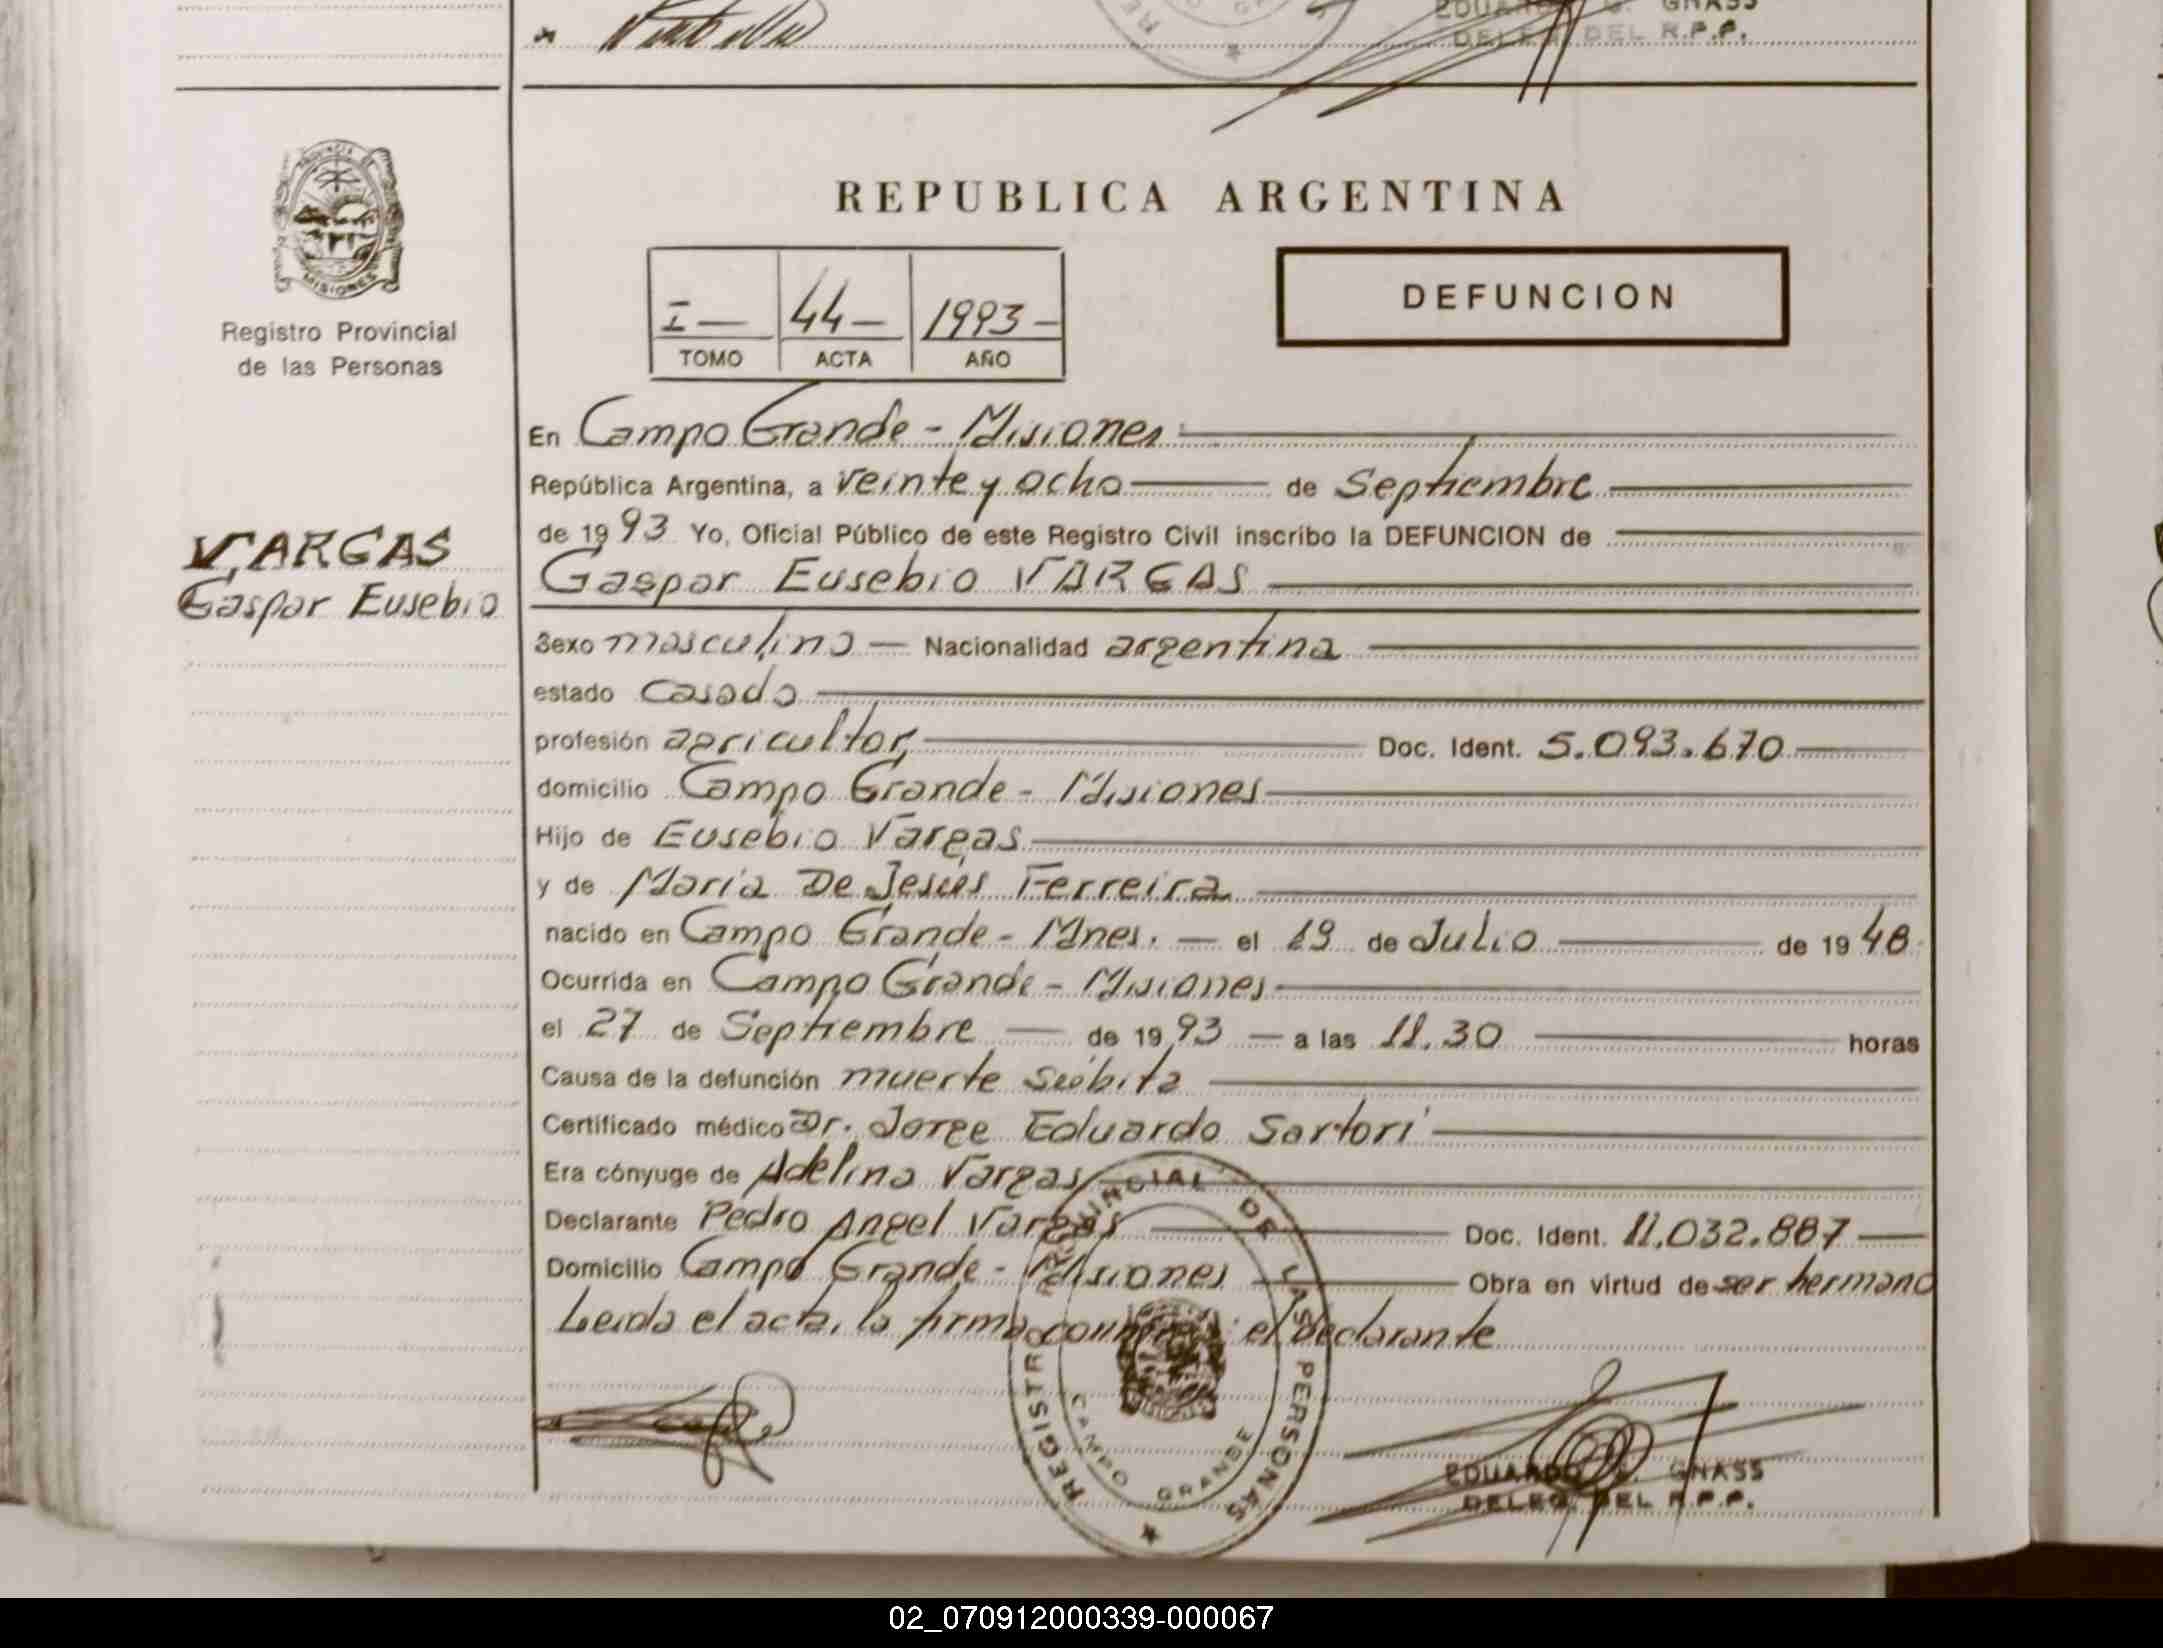 EDUARDO G. GNASS
DELEG. DEL R.P.P.
PROVINCIA DE
MISIONES
Registro Provincial
de las Personas
REPUBLICA ARGENTINA
I — 44 — 1993 —
TOMO ACTA AÑO
DEFUNCION
En Campo Grande - Misiones
República Argentina, a veinte y ocho de Septiembre
de 1993 Yo, Oficial Público de este Registro Civil inscribo la DEFUNCION de
Gaspar Eusebio VARGAS
VARGAS
Gaspar Eusebio
Sexo masculino — Nacionalidad argentina
estado casado
profesión agricultor, Doc. Ident. 5.093.670
domicilio Campo Grande - Misiones
Hijo de Eusebio Vargas
y de María De Jesús Ferreira
nacido en Campo Grande - Mnes. — el 19 de Julio de 1948
Ocurrida en Campo Grande - Misiones
el 27 de Septiembre — de 1993 — a las 11.30 horas
Causa de la defunción muerte súbita
Certificado médico Dr. Jorge Eduardo Sartori
Era cónyuge de Adelina Vargas
Declarante Pedro Angel Vargas Doc. Ident. 11.032.887
Domicilio Campo Grande - Misiones Obra en virtud de ser hermano
Leída el acta, la firma conmigo el declarante
REGISTRO PROVINCIAL DE LAS PERSONAS
CAMPO GRANDE
EDUARDO G. GNASS
DELEG. DEL R.P.P.
02_070912000339-000067